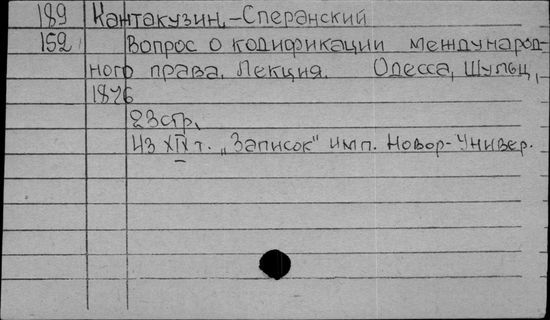 189 Кантакузин,-Сперанский
152 Вопрос о кодификации международ-
ного права. Лекция. Одесса, Шульц,
1876
23 стр.
Из XIX т. „Записок" имп. Новор-Универ.